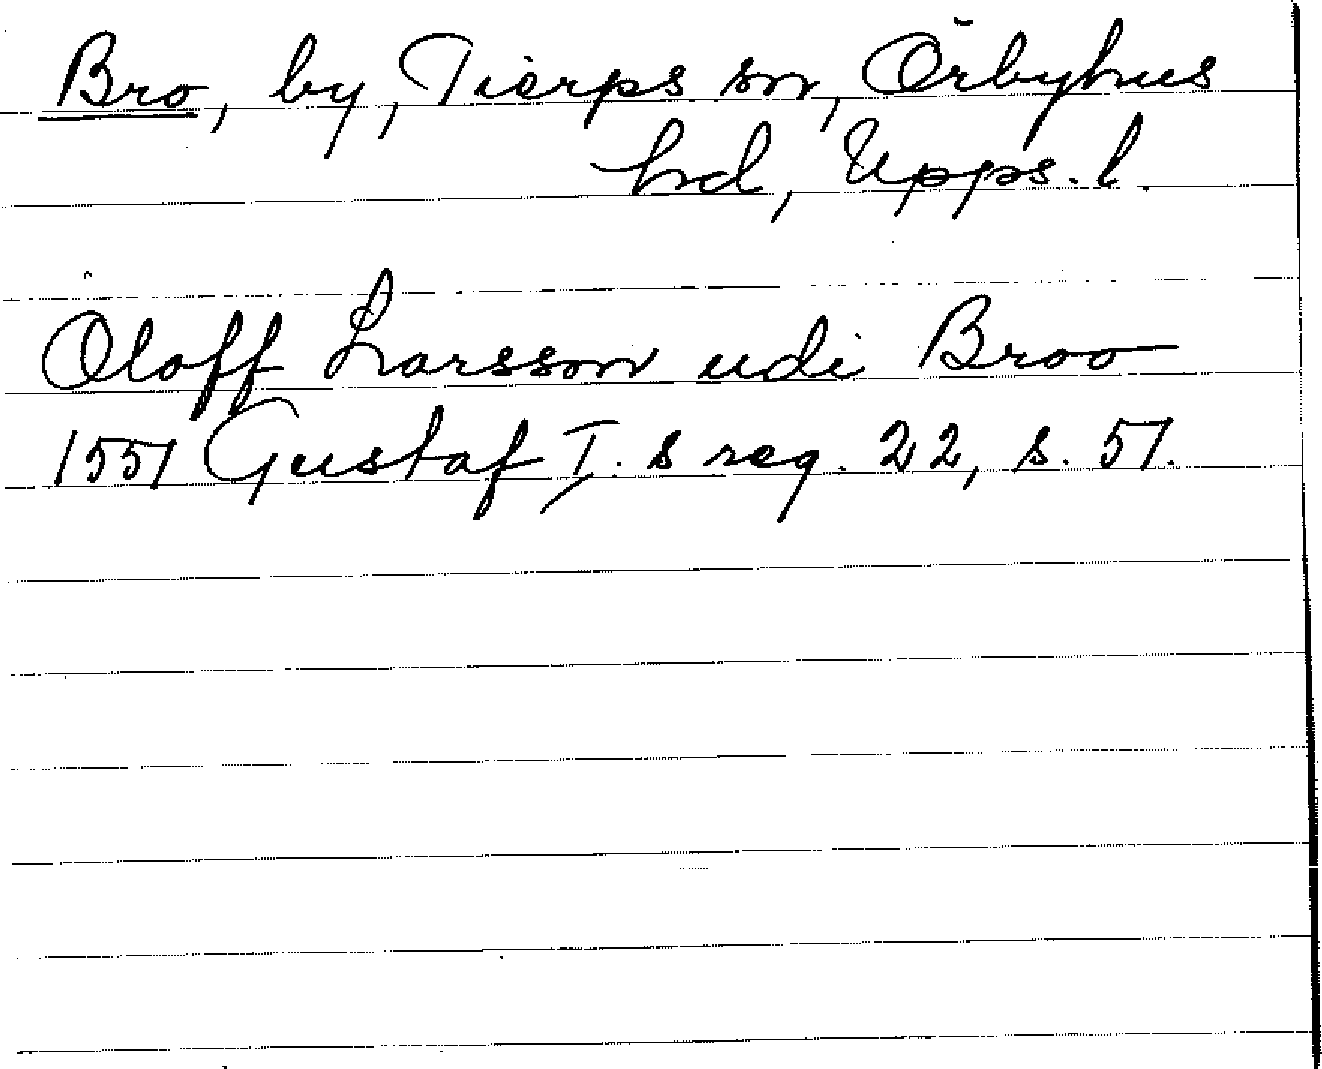 Bro, by, Tierps sn, Örbyhus
hd, Upps. l.
Oloff Larsson udi Broo
1551 Gustaf I. s reg. 22, s. 51.